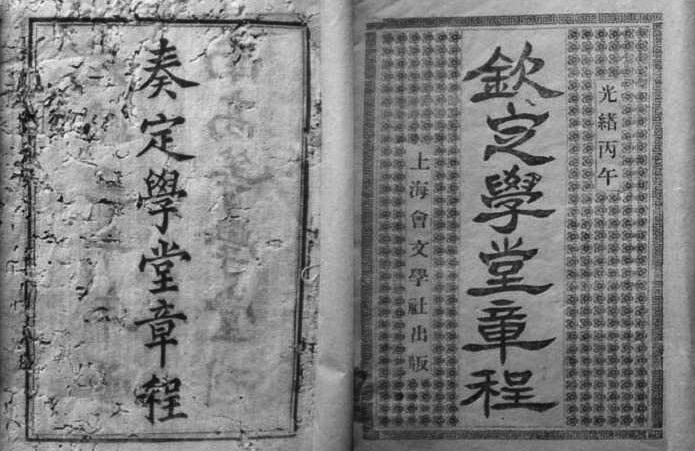 奏定學堂章程
光緒丙午
欽定學堂章程
上海會文學社出版